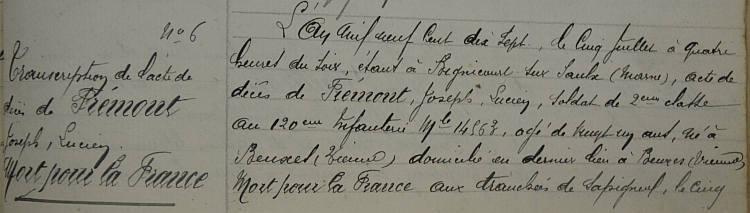 N° 6
Transcription de l'acte de
décès de Frémont
Joseph, Lucien
Mort pour la France
L'An mil neuf cent dix sept, le cinq Juillet à quatre
heures du soir, étant à Pognicourt sur Saulx (Marne), acte de
décès de Frémont, Joseph, Lucien, soldat de 2eme classe
au 120eme Infanterie Mle 14563, agé de vingt un ans, né à
Beuxes (Vienne) domicilié en dernier lieu à Beuxes (Vienne)
Mort pour la France aux tranchées de Sapigneul, le cinq